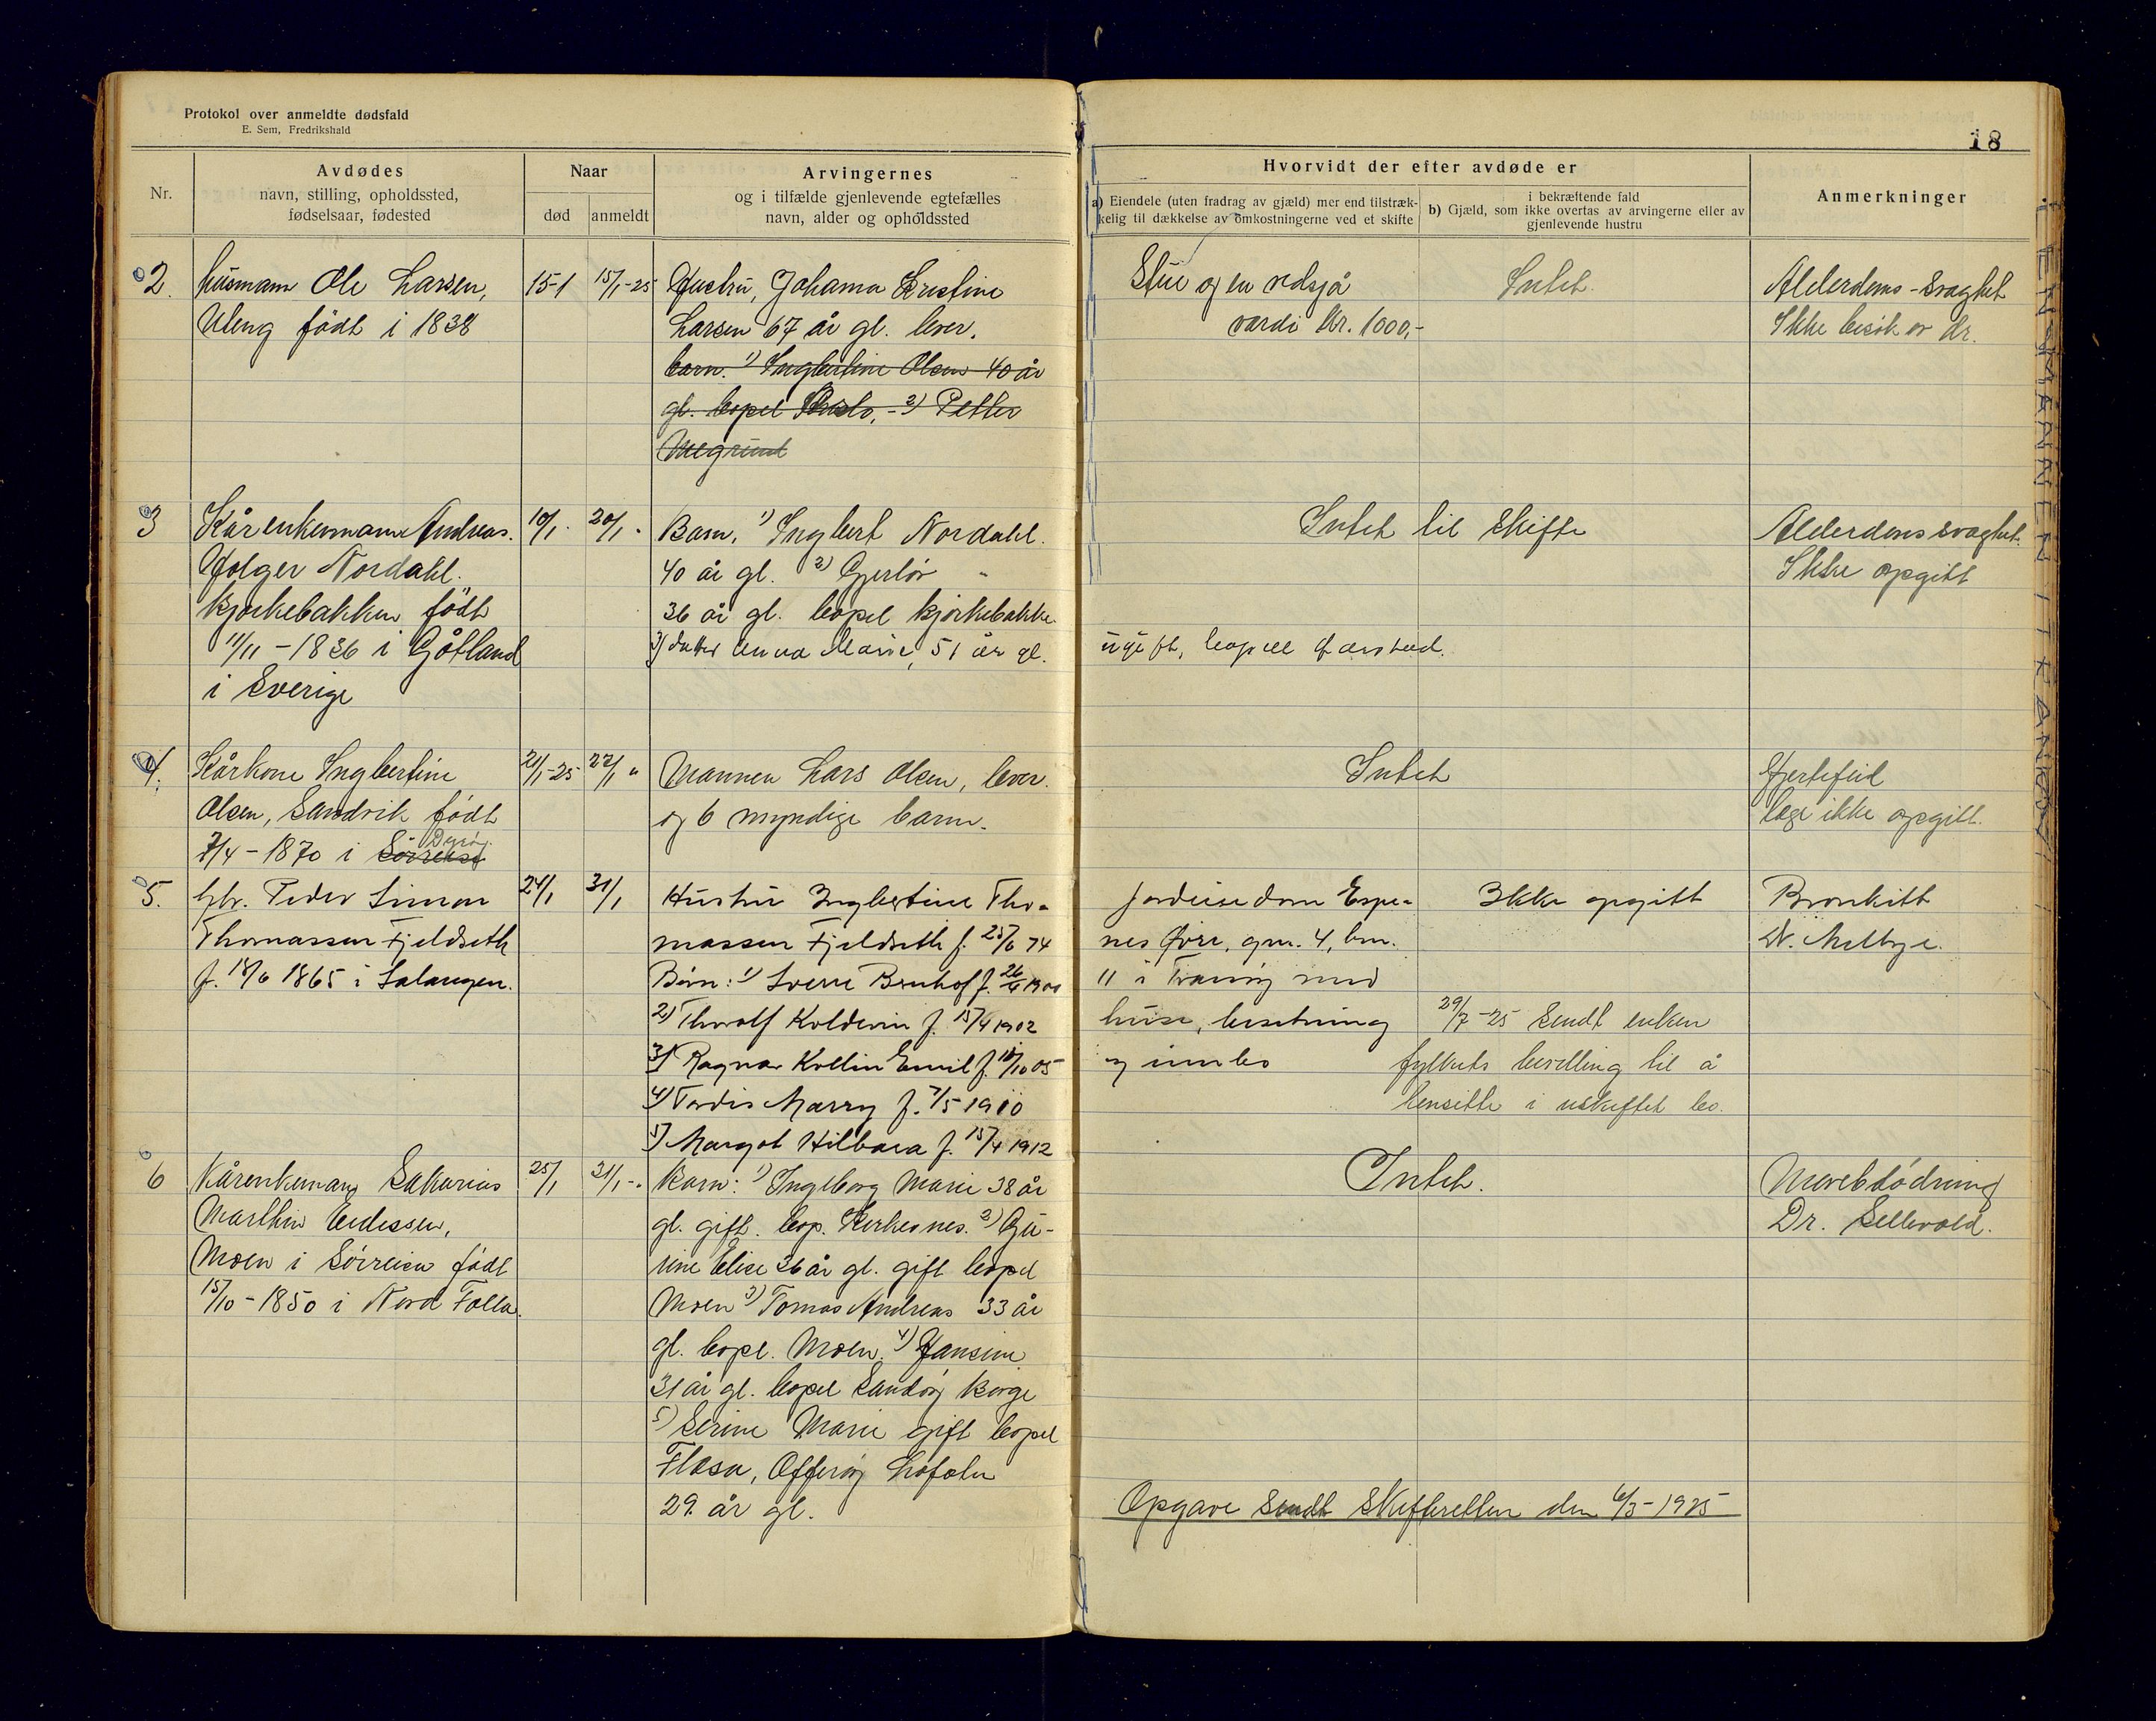 Protokol over anmeldte dødsfald
E. Sem, Fredrikshald
18
Nr.
Avdødes
navn, stilling, opholdssted,
fødselsaar, fødested
Naar
død
anmeldt
Arvingernes
og i tilfælde gjenlevende egtefælles
navn, alder og opholdssted
Hvorvidt der efter avdøde er
a) Eiendele (uten fradrag av gjæld) mer end tilstræk-
kelig til dækkelse av omkostningerne ved et skifte
i bekræftende fald
b) Gjæld, som ikke overtas av arvingerne eller av
gjenlevende hustru
Anmerkninger
2.
husmann Ole Larsen,
Uleng födt i 1838
15-1
15/1-25
Hustru, Johanna Kristine
Larsen 67 år gl. lever.
barn. 1) Ingbertine Olsen 40 år
gl. bopel Oslo, - 2) Petter
Stue og en vedsjå
værdi kr. 1000,-
Intet.
Alderdoms-svaghet
Ikke besök av dr.
3
Kårenkemann Andreas
Holger Nordahl.
kjerkebakken födt
11/11 - 1836 i Gøtland
i Sverige
10/1.
20/1 "
Barn, 1) Ingbert Nordahl.
40 år gl. 2) Gjerlöv "
36 år gl. bopel kjerkebakke.
3) datter Anna Marie, 51 år gl.
ugift, bopæl Harstad.
Intet til skifte
Alderdomssvaghet.
Ikke opgitt
4.
Kårkone Ingbertine
Olsen, Sandvik födt
7/4 - 1870 i Sörreisa Dyröy.
21/1-25
22/1 "
Mannen Lars Olsen, lever.
og 6 myndige barn.
Intet
Hjertefeil
læge ikke opgitt.
5.
Gbr. Peder Simon
Thomassen Fjeldseth
f. 18/6 1865 i Salangen.
24/1
31/1
Hustru Ingbertine Tho-
massen Fjeldseth f. 25/6 74
Börn: 1) Sverre Bernhof f. 26/4 1900
2) Thoralf Koldevin f. 15/4 1902
3) Ragnar Kollin Emil f. 18/10 05
4) Tordis Marry f. 7/5 1910
5) Margot Hilbara f. 15/4 1912
Jordeiendom Espe-
nes övre, gnr. 4, bnr.
11 i Tranöy med
huse, besetning
og innbo
Ikke opgitt
29/7-25 Sendt enken
fylkets bevilling til å
hensitte i uskiftet bo.
Bronkitt
Dr. Melbye.
6
Kårenkemann Sakarias
Marthin Eidissen,
Moen i Sörreisa födt
15/10 - 1850 i Nord Folla.
25/1
31/1 - "
Barn: 1) Ingeborg Marie 38 år
gl. gift. bop. Kirkesnes. 2) Gu-
rine Elise 36 år gl. gift bopel
Moen 3) Tomas Andreas 33 år
gl. bopl. Moen. 4) Hansine
31 år gl. bopel Sandöy Borge
5) Serine Marie gift bopel
Flesa, Offeröy Lofoten
29 år gl.
Intet.
Mavebødning
Dr. Sellevold.
Opgave sendt Skifteretten den 6/3-1925